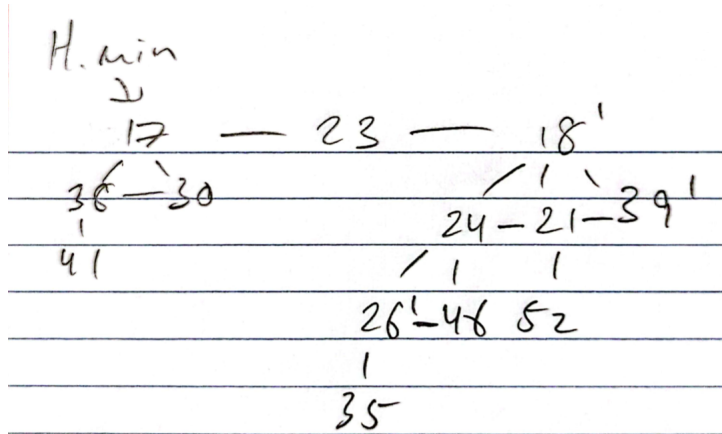 H.min
17 — 23 — 18'
38 — 30 24 — 21 — 39'
41
26' — 46 52
35